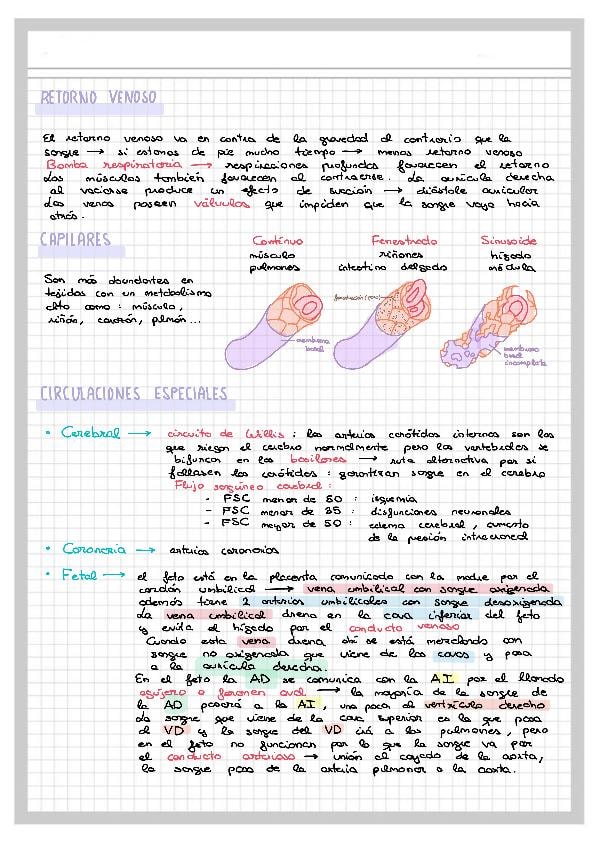 RETORNO VENOSO
El retorno venoso va en contra de la gravedad al contrario que la
sangre → si estamos de pie mucho tiempo → menos retorno venoso
Bomba respiratoria → respiraciones profundas favorecen el retorno
Los músculos también favorecen al contraerse. La aurícula derecha
al vaciarse produce un efecto de succión → diástole auricular
Las venas poseen válvulas que impiden que la sangre vaya hacia
atrás.
CAPILARES
Son más abundantes en
tejidos con un metabolismo
alto como: músculo,
riñón, corazón, pulmón...
Continuo
músculo
pulmones
membrana
basal
Fenestrado
riñones
intestino delgado
fenestración (poro)
Sinusoide
hígado
médula
membrana
basal
incompleta
CIRCULACIONES ESPECIALES
• Cerebral → circuito de Willis: las arterias carótidas internas son las
que riegan el cerebro normalmente pero las vertebrales se
bifurcan en las basilares → ruta alternativa por si
fallasen las carótidas: garantizan sangre en el cerebro
Flujo sanguíneo cerebral:
- FSC menor de 50: isquemia
- FSC menor de 35: disfunciones neuronales
- FSC mayor de 50: edema cerebral, aumento
de la presión intracraneal
• Coronaria → arterias coronarias
• Fetal → el feto está en la placenta comunicado con la madre por el
cordón umbilical → vena umbilical con sangre oxigenada
además tiene 2 arterias umbilicales con sangre desoxigenada
La vena umbilical drena en la cava inferior del feto
y evita el hígado por el conducto venoso
Cuando esta vena drena ahí se está mezclando con
sangre no oxigenada que viene de las cavas y pasa
a la aurícula derecha.
En el feto la AD se comunica con la AI por el llamado
agujero o foramen oval → la mayoría de la sangre de
la AD pasará a la AI, una poca al ventrículo derecho
La sangre que viene de la cava superior es la que pasa
al VD y la sangre del VD irá a los pulmones, pero
en el feto no funcionan por lo que la sangre va por
el conducto arterioso → unión al cayado de la aorta,
la sangre pasa de la arteria pulmonar a la aorta.